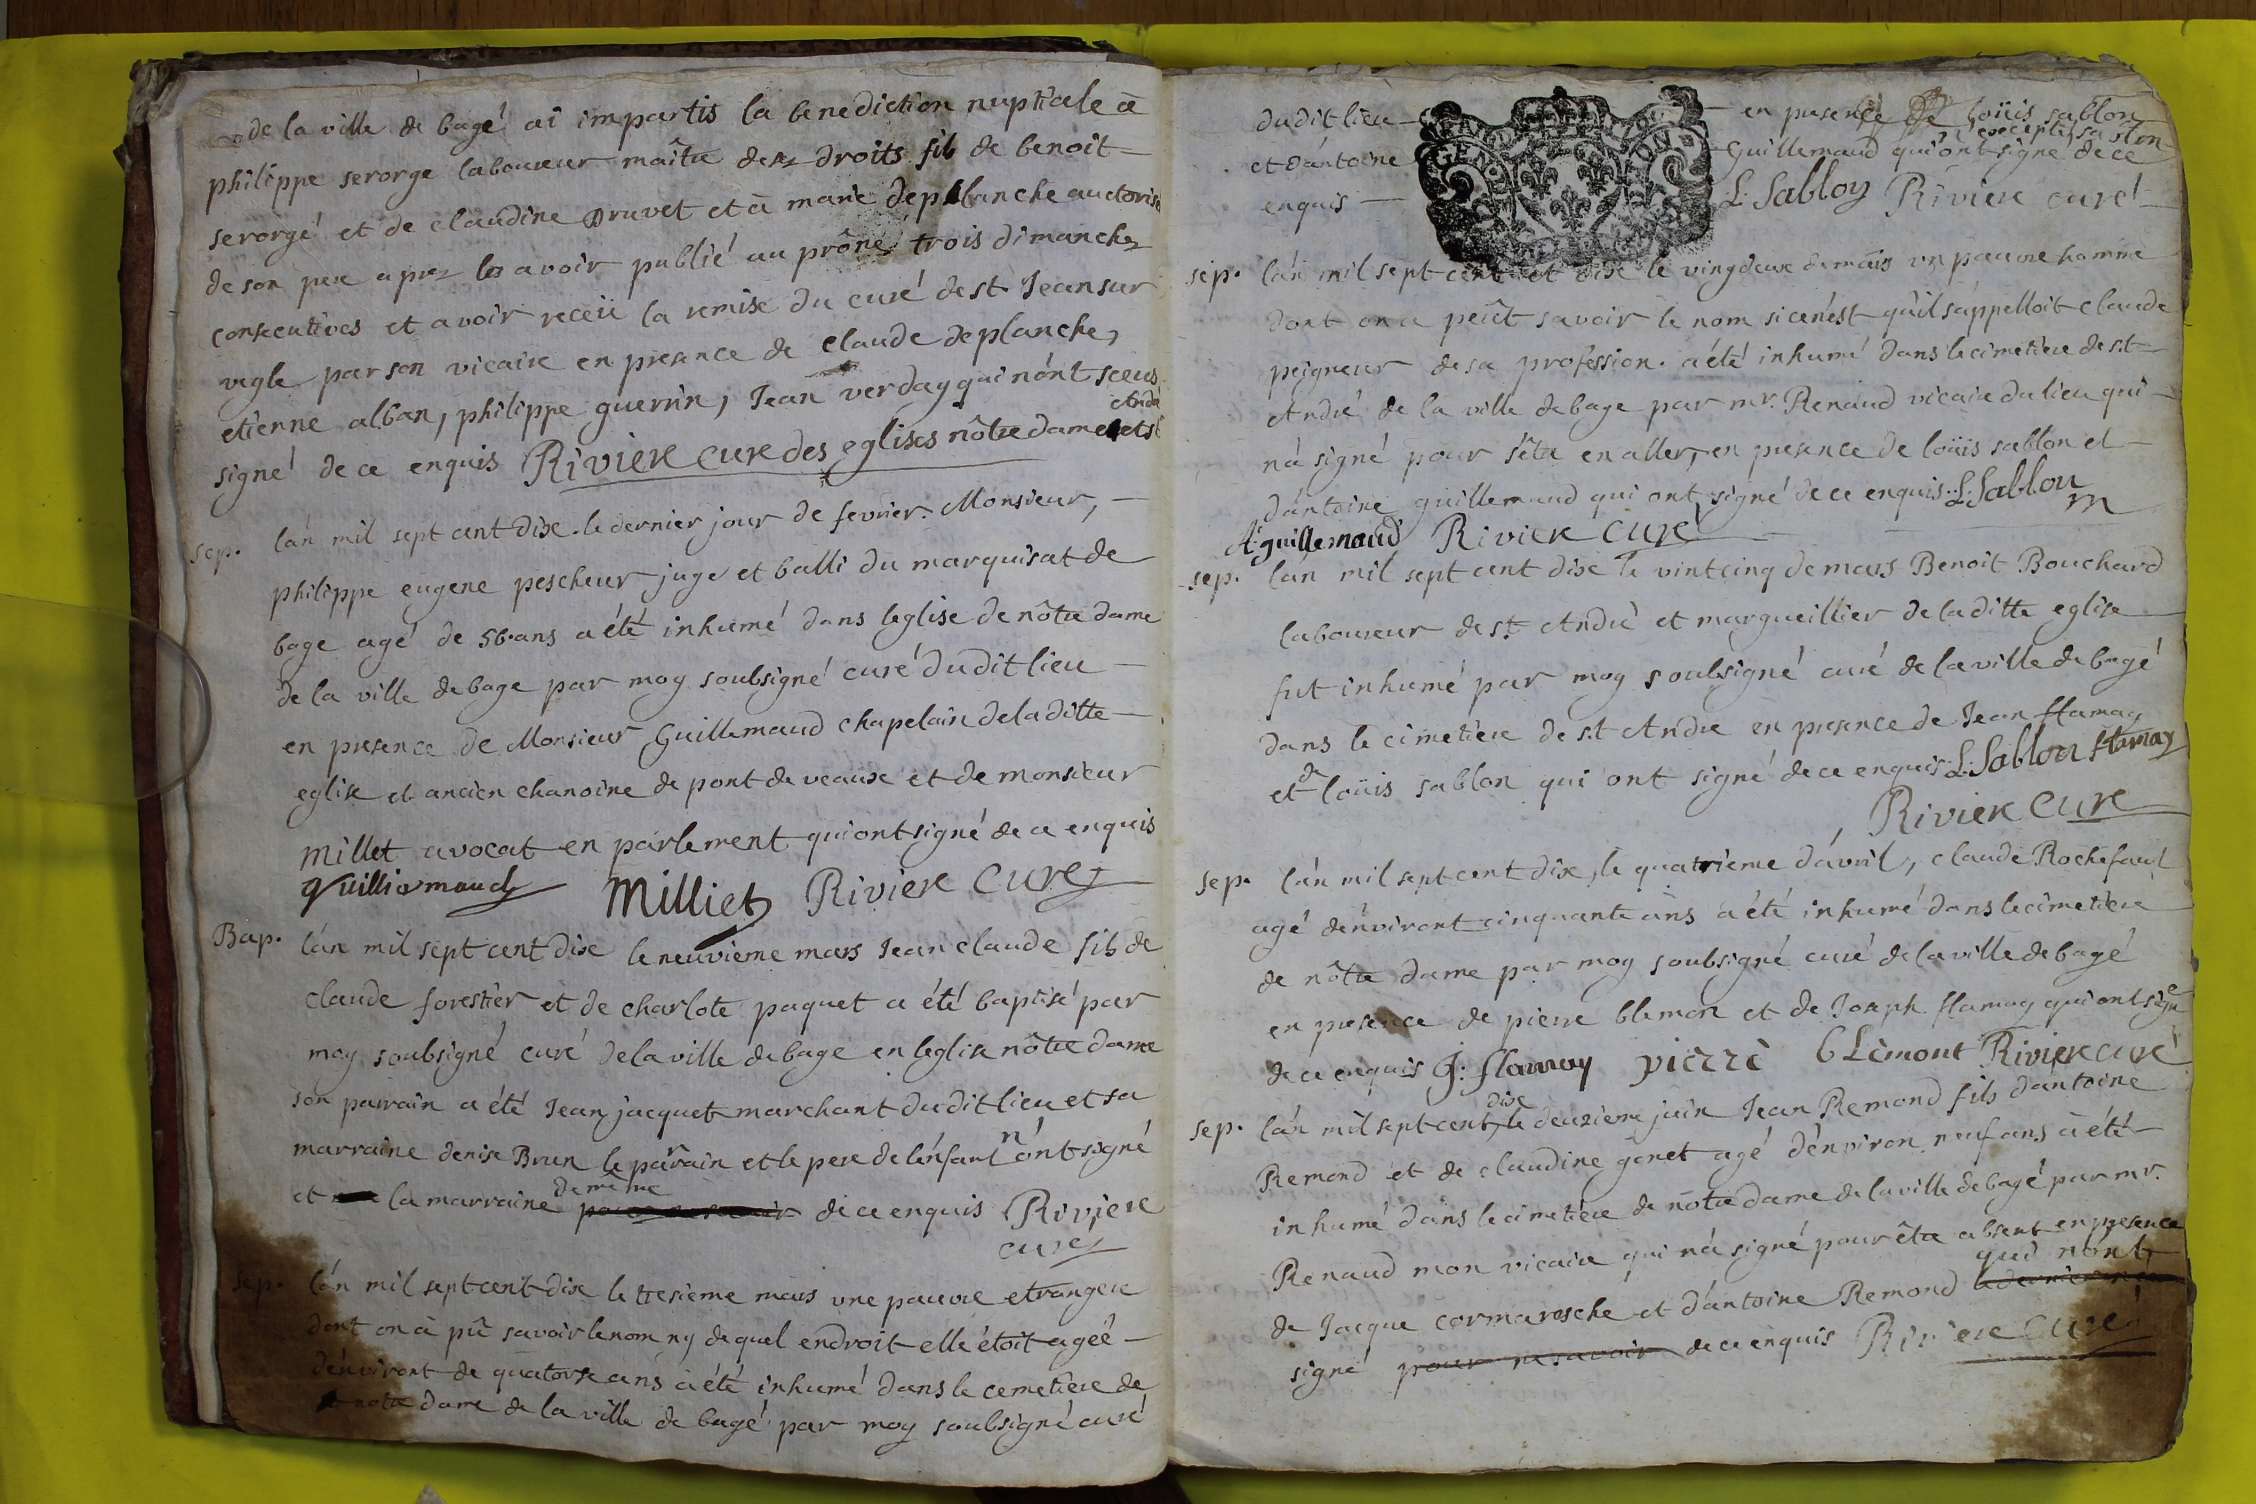 de la ville de bagé ai impartis la benediction nuptiale a
philippe serorge laboureur maître de ses droits fils de benoit
serorgé et de claudine Druvet et à marie deplanche auctorisé
de son pere aprez les avoir publié au prône trois dimanchez
consecutives et avoir receü la remise du curé de st Jean sur
vegle par son vicaire en presence de claude deplanche,
etienne alban, philippe guerrin, Jean verday qui n'ont sceus
signé de ce enquis Riviere cure des eglises nôtre dame et st
André
sep. l'an mil sept cent dixe le dernier jour de fevrier Monsieur,
philippe eugene pescheur juge et balli du marquisat de
bage agé de 56 ans a été inhumé dans leglise de nôtre dame
de la ville de bage par moy soubsigné curé dudit lieu
en presence de Monsieur Guillemaud chapelain de la ditte
eglise et ancien chanoine de pont de veauxe et de monsieur
Millet avocat en parlement qui ont signé de ce enquis
guilliamaud Milliet Riviere Cure
Bap. l'an mil sept cent dixe le neuvieme mars Jean claude fils de
claude forestier et de charlote paquet a été baptisé par
moy soubsigné curé de la ville de bage en leglise nôtre dame
son parrain a été Jean jacquet marchant dudit lieu et sa
marraine denise Brun le parrain et le pere de l'enfant n'ont signé
et la marraine de même de ce enquis Riviere
cure
sep. l'an mil sept cent dixe le tresieme mars une pauvre etrangere
dont on a pû savoir le nom ny de quel endroit elle étoit agée
d'environt de quatorse ans a été inhumé dans le cemetiere de
notre dame de la ville de bagé par moy soubsigné curé
dudit lieu en presence de loüis sablon
et d'antoine Guillemaud qui ont signé de ce
excepté sablon
enquis L. Sablon Riviere curé
sep. l'an mil sept cent et dixe le vingdeuxe de mars un pauvre homme
dont on a peüt savoir le nom si cen'est qu'il s'appelloit claude
peigneur de sa profession. a été inhumé dans le cimetiere de st
André de la ville de bage par mr. Renaud vicaire du lieu qui
n'a signé pour s'etre en aller, en presence de loüis sablon et
d'antoine guillemaud qui ont signé de ce enquis L. Sablon
A. guillemaud Riviere Curé
sep. l'an mil sept cent dixe le vintcinq de mars Benoit Bouchard
laboureur de st André et margueillier de la ditte eglise
fut inhumé par moy soubsigné curé de la ville de bagé
dans le cimetiere de st André en presence de Jean flamay
et de loüis sablon qui ont signé de ce enquis L. Sablon flamay
Riviere Cure
sep. l'an mil sept cent dixe, le quatrieme d'avril, claude Rochefaul
agé d'environt cinquante ans a été inhumé dans le cimetiere
de nôtre dame par moy soubsigné curé de la ville de bagé
en presence de pierre blemon et de Joseph flamay qui ont signé
de ce enquis J. flamay pierre blemont Riviere curé
sep. l'an mil sept cent dixe le deuzieme juin Jean Remond fils d'antoine
Remond et de claudine genet agé d'environ neuf ans a été
inhumé dans le cimetiere de notre dame de la ville de bagé par mr.
Renaud mon vicaire qui n'a signé pour être absent en presence
de Jacque cormaresche et d'antoine Remond qui n'ont
signé pour ne savoir de ce enquis Riviere Curé